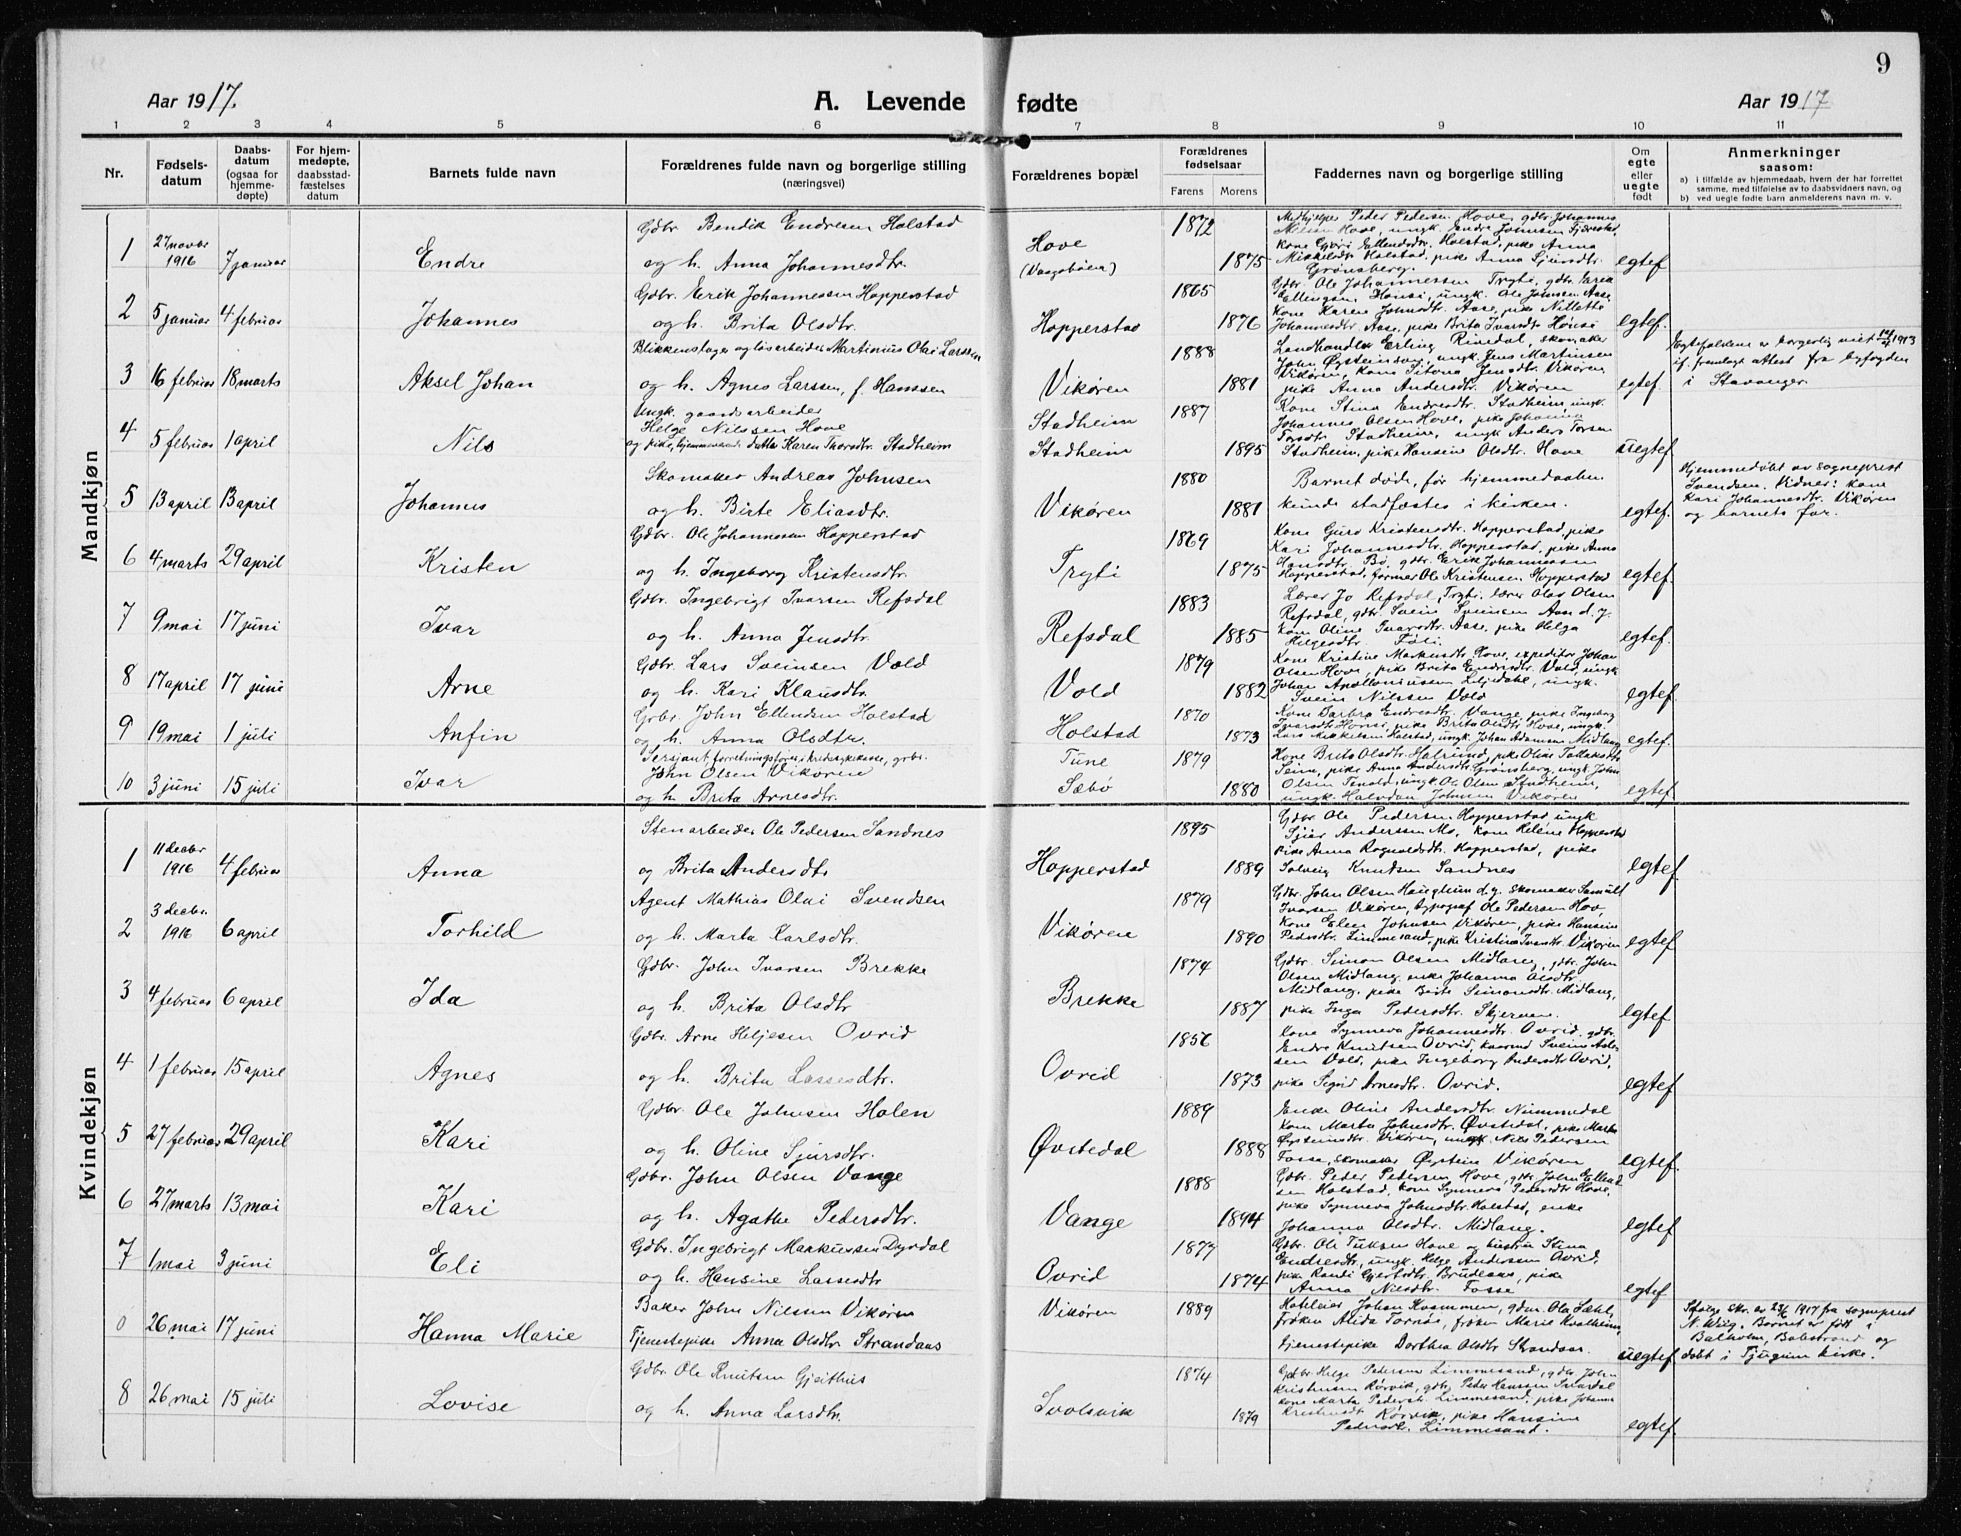 9
Aar 1917. A. Levende fødte Aar 1917
1 2 3 4 5 6 7 8 9 10 11
Nr. Fødselsdatum Daabsdatum (ogsaa for hjemmedøpte) For hjemmedøpte, daabsstadfæstelses datum Barnets fulde navn Forældrenes fulde navn og borgerlige stilling (næringsvei) Forældrenes bopæl Forældrenes fødselsaar Farens Morens Faddernes navn og borgerlige stilling Om egte eller uegte født Anmerkninger saasom:
a) i tilfælde av hjemmedaab, hvem der har forrettet samme, med tilføielse av to daabsvidners navn, og
b) ved uegte fødte barn anmelderens navn m. v.
Mandkjøn
1 27 novbr 1916 7 januar Endre Gdbr. Bendik Endresen Holstad og h. Anna Johannesdtr. Hove 1872 1875 Medhjelper Peder Pedersen Hove, gdbr. Johannes Nilsen Hove, ungk. Endre Johnsen kone Ellendsdtr. Holstad, pike Anna Mikkelsdtr. Holstad, pike Anna Sjursdtr. Grønsberg. egtef
2 5 januar 4 februar Johannes Gdbr. Erik Johannessen Hopperstad og h. Brita Olsdtr. Hopperstad 1865 1876 Gdbr. Ole Johannessen Tryti, gdbr. Ellingsen Hønsi, ungk. Ole Johnsen Aase, Kone Karen Johnsdtr. Aase, pike Johannesdtr. Aase, pike Brita Ivarsdtr. Hønsi egtef.
3 16 februar 18 marts Aksel Johan Blikkenslager og løsarbeider Martinius Olai Larssen og h. Agnes Larssen, f. Hanssen Vikøren 1888 1881 Landhandler Erling Rinedal, skomaker John Øysteinson, ungk. Jens Martinsen Vikøren, kone Jensdtr. Vikøren pike Anna Andersdtr. Vikøren egtef. Egtefolkene er borgerlig viet 1913 if. fremlagt attest fra byfogden i Stavanger.
4 5 februar 1 april Nils Ungk. gaardsarbeider Helge Nilssen Hove og pike, hjemmeværende datter Karen Thorsdtr. Stadheim Stadheim Stadheim 1887 1895 Kone Stina Endresdtr. Stadheim, ungk. Johannes Olsen Hove, pike Johanna Torsdtr. Stadheim, ungk Anders Torsen Stadheim, pike Hansine Olsdtr. Hove uegtef
5 13 april 13 april Johannes Skomaker Andreas Johnsen og h. Birte Eliasdtr. Vikøren 1880 1881 Barnet døde, før hjemmedaaben kunde stadfæstes i kirken. egtef. Hjemmedøbt av sogneprest Svendsen. Vidner: kone Kari Johannesdtr. Vikøren og barnets far.
6 4 marts 29 april Kristen Gdbr. Ole Johannessen Hopperstad og h. Ingeborg Kristensdtr. Tryti 1869 1875 Kone Guro Kristensdtr. Hopperstad, pike Kari Johannesdtr. Hopperstad, pike Anna Hansdtr. Bø, gdbr. Erik Johannessen Hopperstad, farmer Ole Kristensen Hopperstad egtef.
7 9 mai 17 juni Ivar Gdbr. Ingebrigt Ivarsen Refsdal og h. Anna Jensdtr. Refsdal 1883 1885 Lærer Jo Refsdal, Tryti, lærer Olav Olsen Refsdal, gdbr. Svein Sveinsen Aase d. y. kone Oline Ivarsdtr. Aase, pike Helga Helgesdtr. egtef.
8 17 april 17 juni Arne Gdbr. Lars Sveinsen Vold og h. Kari Klausdtr. Vold 1879 1882 Kone Kristine Markusdtr. Hove, expeditør Johan Olsen Hove, pike Brita Endresdtr. Vold, ungk. Johan Apolloniussen ungk. Svein Nilssen Vold egtef.
9 19 mai 1 juli Anfin Gdbr. John Ellendsen Holstad og h. Anna Olsdtr. Holstad 1870 1873 Kone Barbra Endresdtr. Vange, pike Ingeborg Ivarsdtr. Hønsi, pike Brita Olsdtr. Hove, ungk. Lars Mikkelsen Holstad, ungk. Johan Adamsen Midlang egtef.
10 3 juni 15 juli Ivar Sersjant, forretningsfører i kredsykekasse, gdbr. John Olsen Vikøren og h. Brita Arnesdtr. Tune Sæbø 1879 1880 Kone Brita Olsdtr. pike Oline Seim, pike Anna Andersdtr. Grønsberg, ungk. John Olsen Tenold, ungk. Ole Olsen Stadheim, ungk. Halvdan Johnsen Vikøren egtef
Kvindekjøn
1 11 decbr 1916 4 februar Anna Stenarbeider Ole Pedersen Sandnes og Brita Andersdtr Hopperstad 1895 1889 Gdbr. Ole Pedersen Hopperstad ungk Anderssen Mo, kone Helene Hopperstad Pike Anna Rognaldsdtr. Hopperstad, pike Solveig Knutsen Sandnes egtef.
2 3 decbr. 1916 6 april Torhild Agent Mathias Olai Svendsen og h. Marta Karlsdtr. Vikøren 1879 1890 Gdbr. John Olsen Haughum d.y. skomaker Samuel Ivarsen Vikøren, typograf Ole Pedersen Hov, Kone Elen Johnsen Vikøren, pike Hansine Pedersdtr. Limmesand, pike Kristina Ivarsdtr. Vikøren egtef.
3 4 februar 6 april Ida Gdbr. John Ivarsen Brekke og h. Brita Olsdtr Brekke 1874 1887 Gdbr. Simon Olsen Midlang, gdbr. John Olsen Midlang, enke Johanna Olsdtr. Midlang, pike Birte Simonsdtr. Midlang, pike Inga Pedersdtr. Skjerven. egtef
4 1 februar 15 april Agnes Gdbr. Arne Heljesen Ovrid og h. Brita Lassesdtr. Ovrid 1856 1873 Kone Synneva Johannesdtr. Ovrid, gdbr. Endre Knutsen Ovrid, Vold, pike Ingeborg Andersdtr Ovrid, pike Sigrid Arnesdtr. Ovrid. egtef
5 27 februar 29 april Kari Gdbr. Ole Johnsen Holen og h. Oline Sjursdtr. Øvstedal 1889 1888 Enke Oline Andersdtr Nummedal Kone Marta Johnsdtr. Øvstedal, pike Marta Øysteinsdtr. Vikøren, ungk Nils Pedersen Fosse, skomaker Øystein Vikøren egtef.
6 27 marts 13 mai Kari Gdbr. John Olsen Vange og h. Agathe Pedersdtr. Vange 1888 1894 Gdbr. Peder Pedersen Hove, gdbr John Ellendsen Holstad, kone Synneva Pedersdtr Hove, pike Synneva Johnsdtr. Holstad, enke Johanna Olsdtr. Midlang. egtef
7 1 mai 3 juni Eli Gdbr. Ingebrigt Markussen Dyrdal og h. Hansine Lassesdtr Ovrid 1877 1874 Gdbr. Ole Hove og hustru Stina Endresdtr., ungk. Helge Andersen Ovrid, pike Randi Gjertsdtr. pike Anna Nilsdtr. Fosse egtef
0 26 mai 17 juni Hanna Marie Baker John Nilssen Vikøren Tjenestepike Anna Olsdtr. Strandaas Vikøren 1889 Johan Kvammen, gdm. Ola Sæhl, frøken Alida Tornøe, frøken Marie Kvalheim, tjenestepike Dorthea Olsdtr Strandaas. uegtef Ifølge skr. av 23/6 1917 fra sogneprest N. Wiig. Barnet er født i Balholm, Balestrand og døbt i Tjugum kirke.
8 26 mai 15 juli Lovise Gdbr. Ole Knutsen Gjeithus og h. Anna Larsdtr. Svolsvik 1874 1879 Gdbr. Helge Pedersen Limmesand, gdbr John Kristensen Rørvik, gdbr Peder Hanssen kone Marta Pedersdtr. Limmesand, pike Johanna Kristensdtr Rørvik, pike Hansine Pedersdtr. Limmesand. egtef.